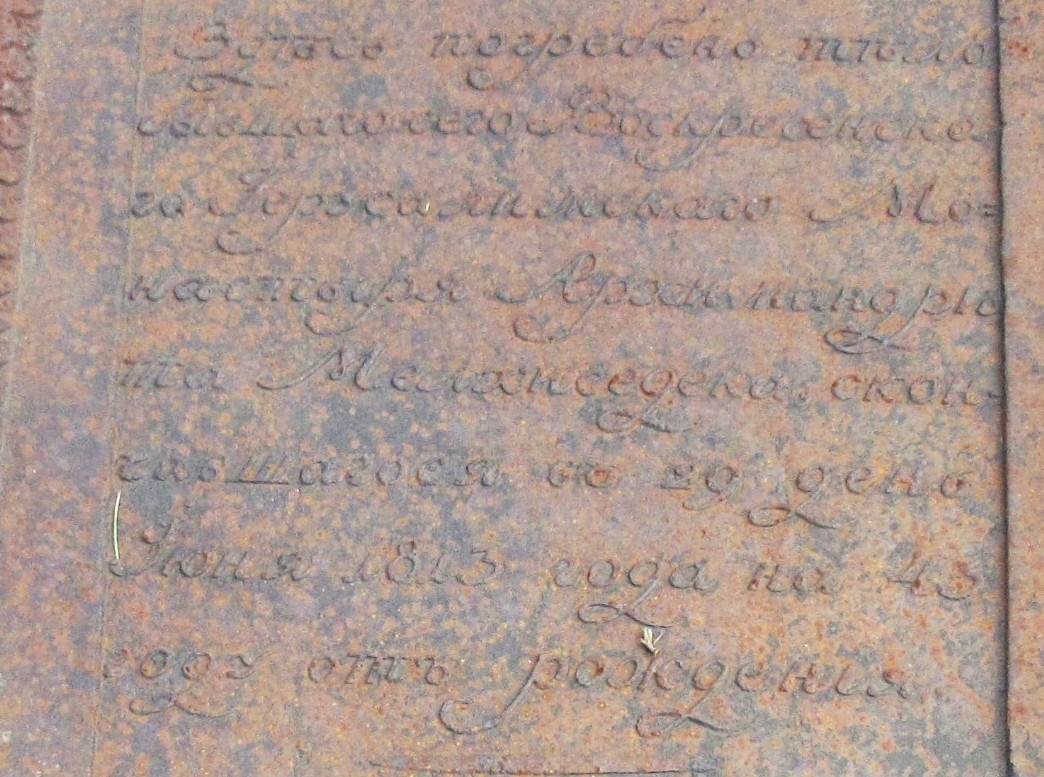 Здѣсь погребено тѣло
бывшаго сего Воскресенска-
го Іерусалимскаго Мо=
настыря Архимандри
та Мелхиседека, скон-
чавшагося въ 29 день
Іюня 1813 года на 43
году отъ рождения